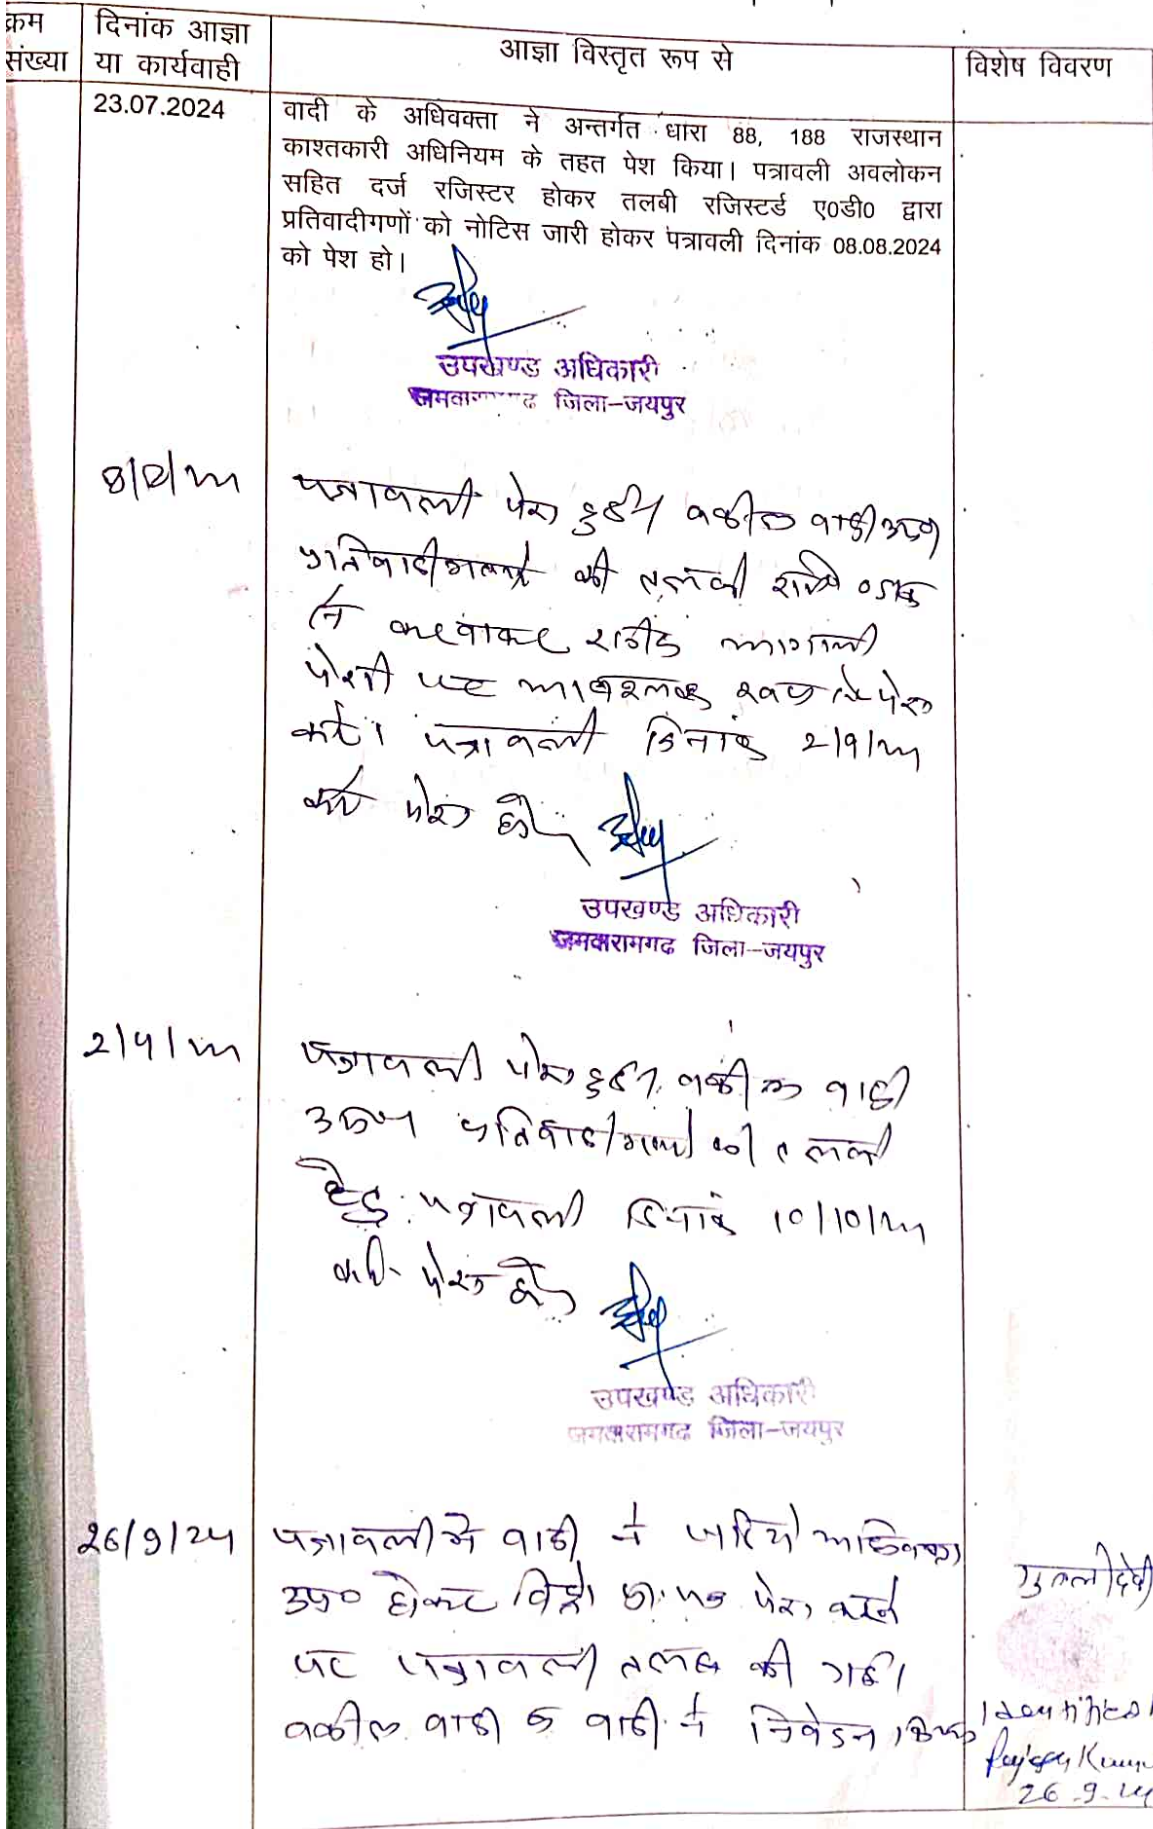 क्रम संख्या
दिनांक आज्ञा या कार्यवाही
आज्ञा विस्तृत रूप से
विशेष विवरण
23.07.2024
वादी के अधिवक्ता ने अन्तर्गत धारा 88, 188 राजस्थान
काश्तकारी अधिनियम के तहत पेश किया। पत्रावली अवलोकन
सहित दर्ज रजिस्टर होकर तलबी रजिस्टर्ड ए०डी० द्वारा
प्रतिवादीगणों को नोटिस जारी होकर पत्रावली दिनांक 08.08.2024
को पेश हो।
उपखण्ड अधिकारी
जिला-जयपुर
8/8/24
पत्रावली पेश हुई। वकील वादी उप०
प्रतिवादीगणों की तलबी
करवाकर रसीद आगामी
पेशी पर आवश्यक रूप से पेश
करें। पत्रावली दिनांक 2/9/24
को पेश हो।
उपखण्ड अधिकारी
जमवारामगढ जिला-जयपुर
2/9/24
पत्रावली पेश हुई। वकील वादी
उप० प्रतिवादीगणों की तलबी
हेतु पत्रावली दिनांक 10/10/24
को पेश हो।
उपखण्ड अधिकारी
जमवारामगढ जिला-जयपुर
26/9/24
पत्रावली में वादी ने जरिये अधिवक्ता
उप० होकर प्रा. पत्र पेश करने
पर पत्रावली तलब की गई।
वकील वादी व वादी ने निवेदन किया
Identified
26-9-24